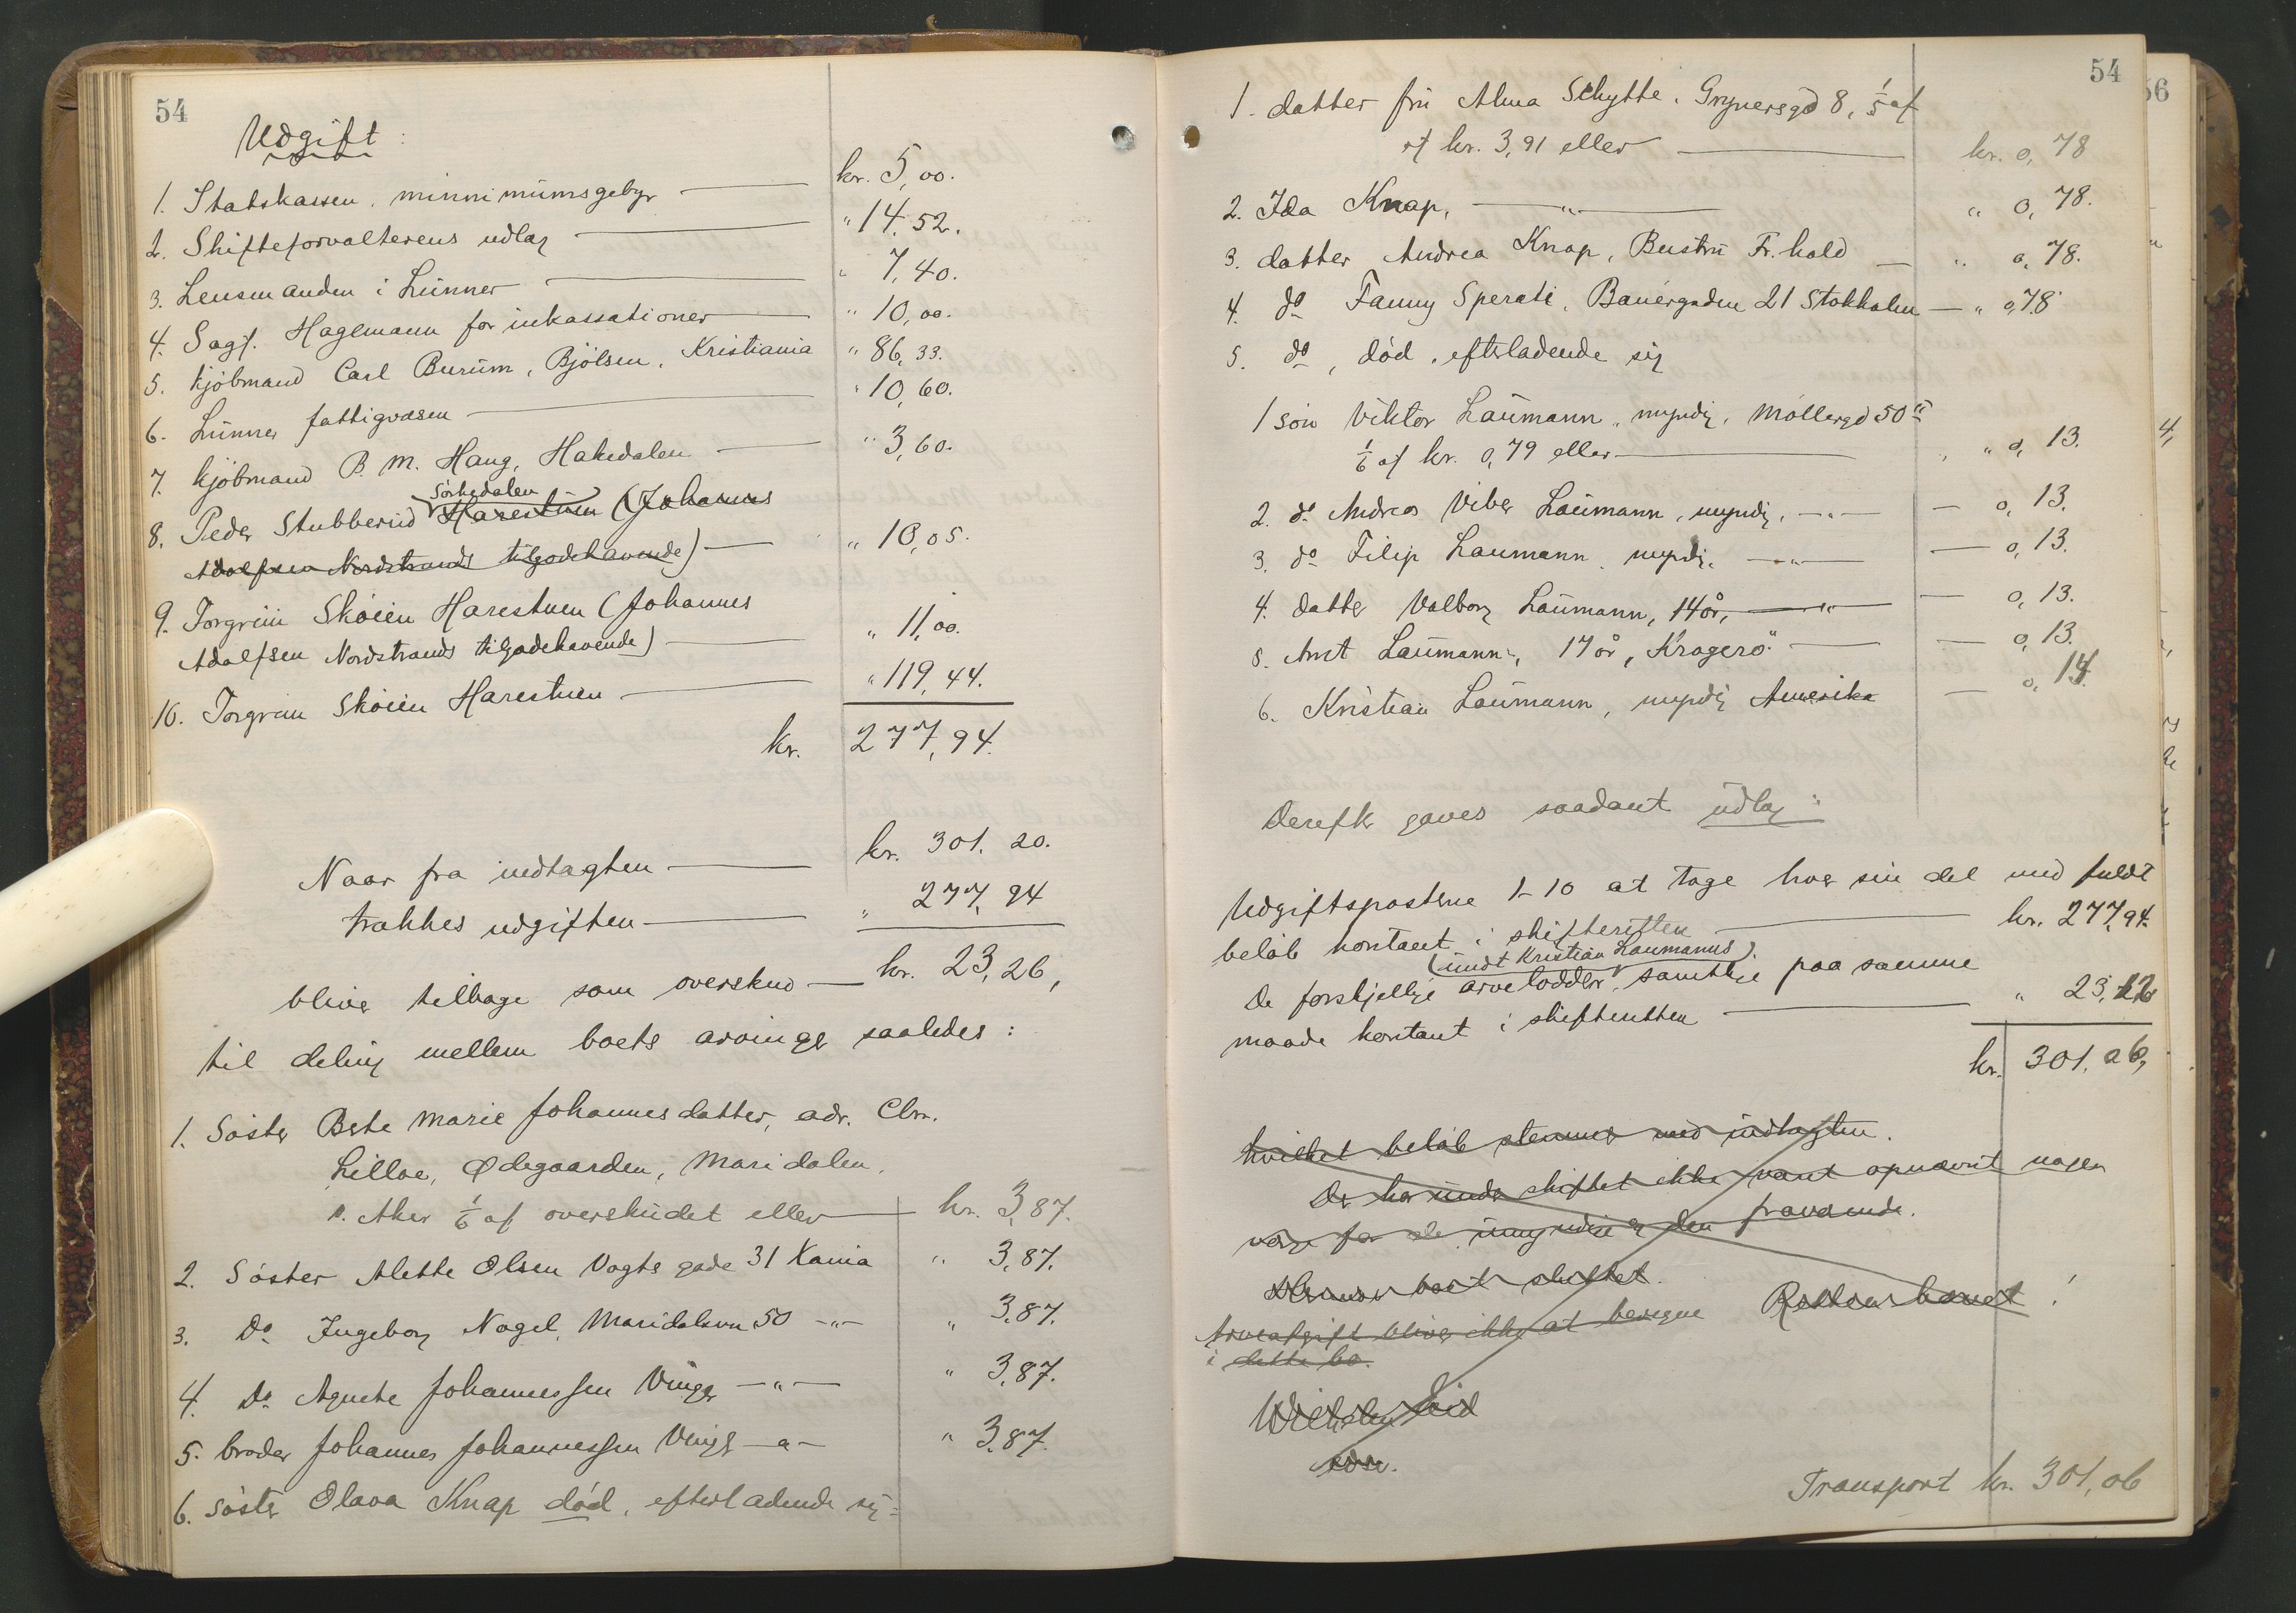 54
Udgift:
1. Statskassen, minnimumsgebyr — kr. 5,00.
2. Skifteforvalterens udlæg — " 14,52.
3. Lensmanden i Lunner — " 7,40.
4. Sagf. Hagemann for inkassationer — " 10,00.
5. Kjöbmand Carl Burum, Bjölsen, Kristiania " 86,33.
6. Lunner fattigvæsen — " 10,60.
7. Kjöbmand B. M. Haug, Hakedalen — " 3,60.
Sörkedalen
8. Peder Stubberud Harestuen (Johannes
Adolfsen Nordstrands tilgodehavende) — " 10,05.
9. Torgrim Sköien Harestuen (Johannes
Adolfsen Nordstrands tilgodehavende) — " 11,00.
10. Torgrim Sköien Harestuen — " 119,44.
kr. 277,94.
Naar fra indtægten — kr. 301.20.
trækkes udgiften — " 277,94
bliver tilbage som overskud — kr. 23,26,
til deling mellem boets arvinger saaledes:
1. Söster Berte Marie Johannesdatter, adr. Chr.
Lilloe, Ødegaarden, Maridalen,
v. Aker 1/6 af overskudet eller — kr. 3,87.
2. Söster Alette Olsen Vogts gade 31 Kania " 3,87.
3. Do Ingeborg Nagel, Maridalsvn 50 -"- " 3,87.
4. Do Agnete Johannessen Vinger -"- " 3,87.
5. broder Johannes Johannessen Vinger -"- " 3,87.
6. söster Olava Knap död, efterladende sig:
54
56
1. datter fru Alma Schytte, Grynersgd 8, 1/5 af
af kr. 3,91 eller — kr. 0,78
2. Ida Knap, —"— " 0,78.
3. datter Andrea Knap, Fr.hald — " 0,78.
4. do Fanny Sperati, Banérgaden 21 Stokholm — " 0,78
5. do, död, efterladende sig
1 sön Viktor Laumann, myndig, Möllergd 50
1/6 af kr. 0,79 eller — " 0,13.
2. do Andreas Viber Laumann, myndig, -"- — 0,13.
3. do Filip Laumann, myndig, -"- — 0,13.
4. datter Valborg Laumann, 14 år, -"- — 0,13.
5. Arnt Laumann, 17 år, Kragerö — 0,13.
6. Kristian Laumann, myndig Amerika — 0,14.
Derefter gaves saadant udlæg:
Udgiftsposterne 1-10 at tage hver sin del med fuldt
belöb kontant i skifteretten — kr. 277,94.
(undt Kristian Laumanns)
De forskjellige arvelodder, samtlige paa samme
maade kontant i skifteretten — " 23,12
kr. 301,06,
hvilket belöb stemmer med indtægten.
Der har under skiftet ikke været opnævnt nogen
verge for de umyndige og den fraværende.
Hermed boet sluttet.
Arveafgift bliver ikke at beregne Retten hævet!
i dette bo.
Wilhelm
edsv.
Transport kr. 301,06